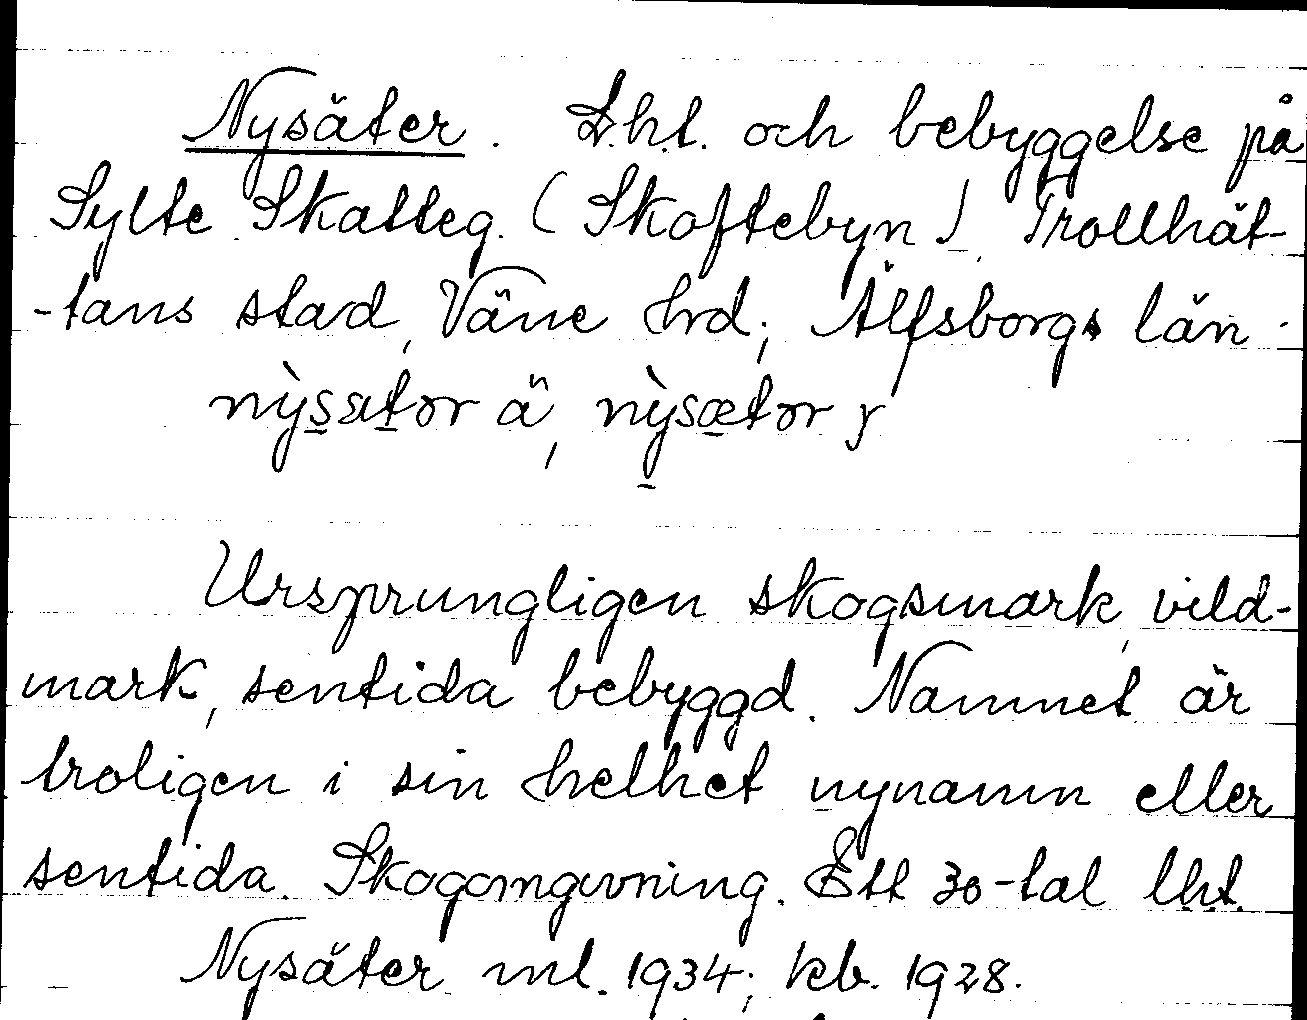 Nysäter. L.h.t. och bebyggelse på
Sylte Skatteg. (Skoftebyn), Trollhät-
-tans stad, Väne hrd; Älfsborgs län.
nỳsætor ä, nỳsætor y
Ursprungligen skogsmark, vild-
mark, sentida bebyggd. Namnet är
troligen i sin helhet nynamn eller
sentida. Skogomgivning. Ett 30-tal lht.
Nysäter ml. 1934; kb. 1928.